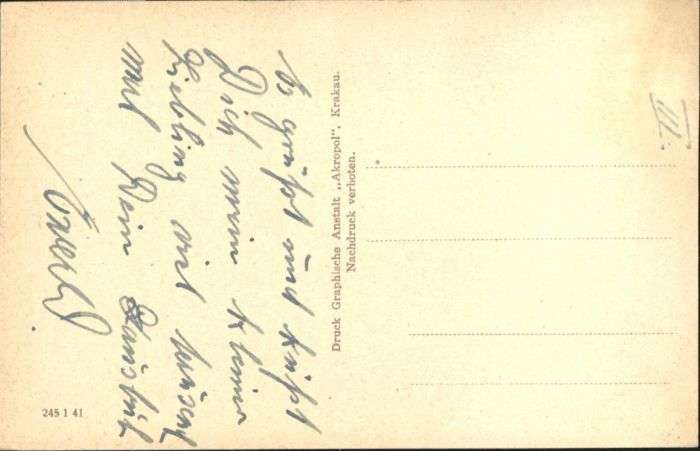 Es grüßt und küßt
Dich mein kleiner
Liebling viel
und Dein
Druck Graphische Anstalt „Akropol", Krakau.
Nachdruck verboten.
III.
245 1 41